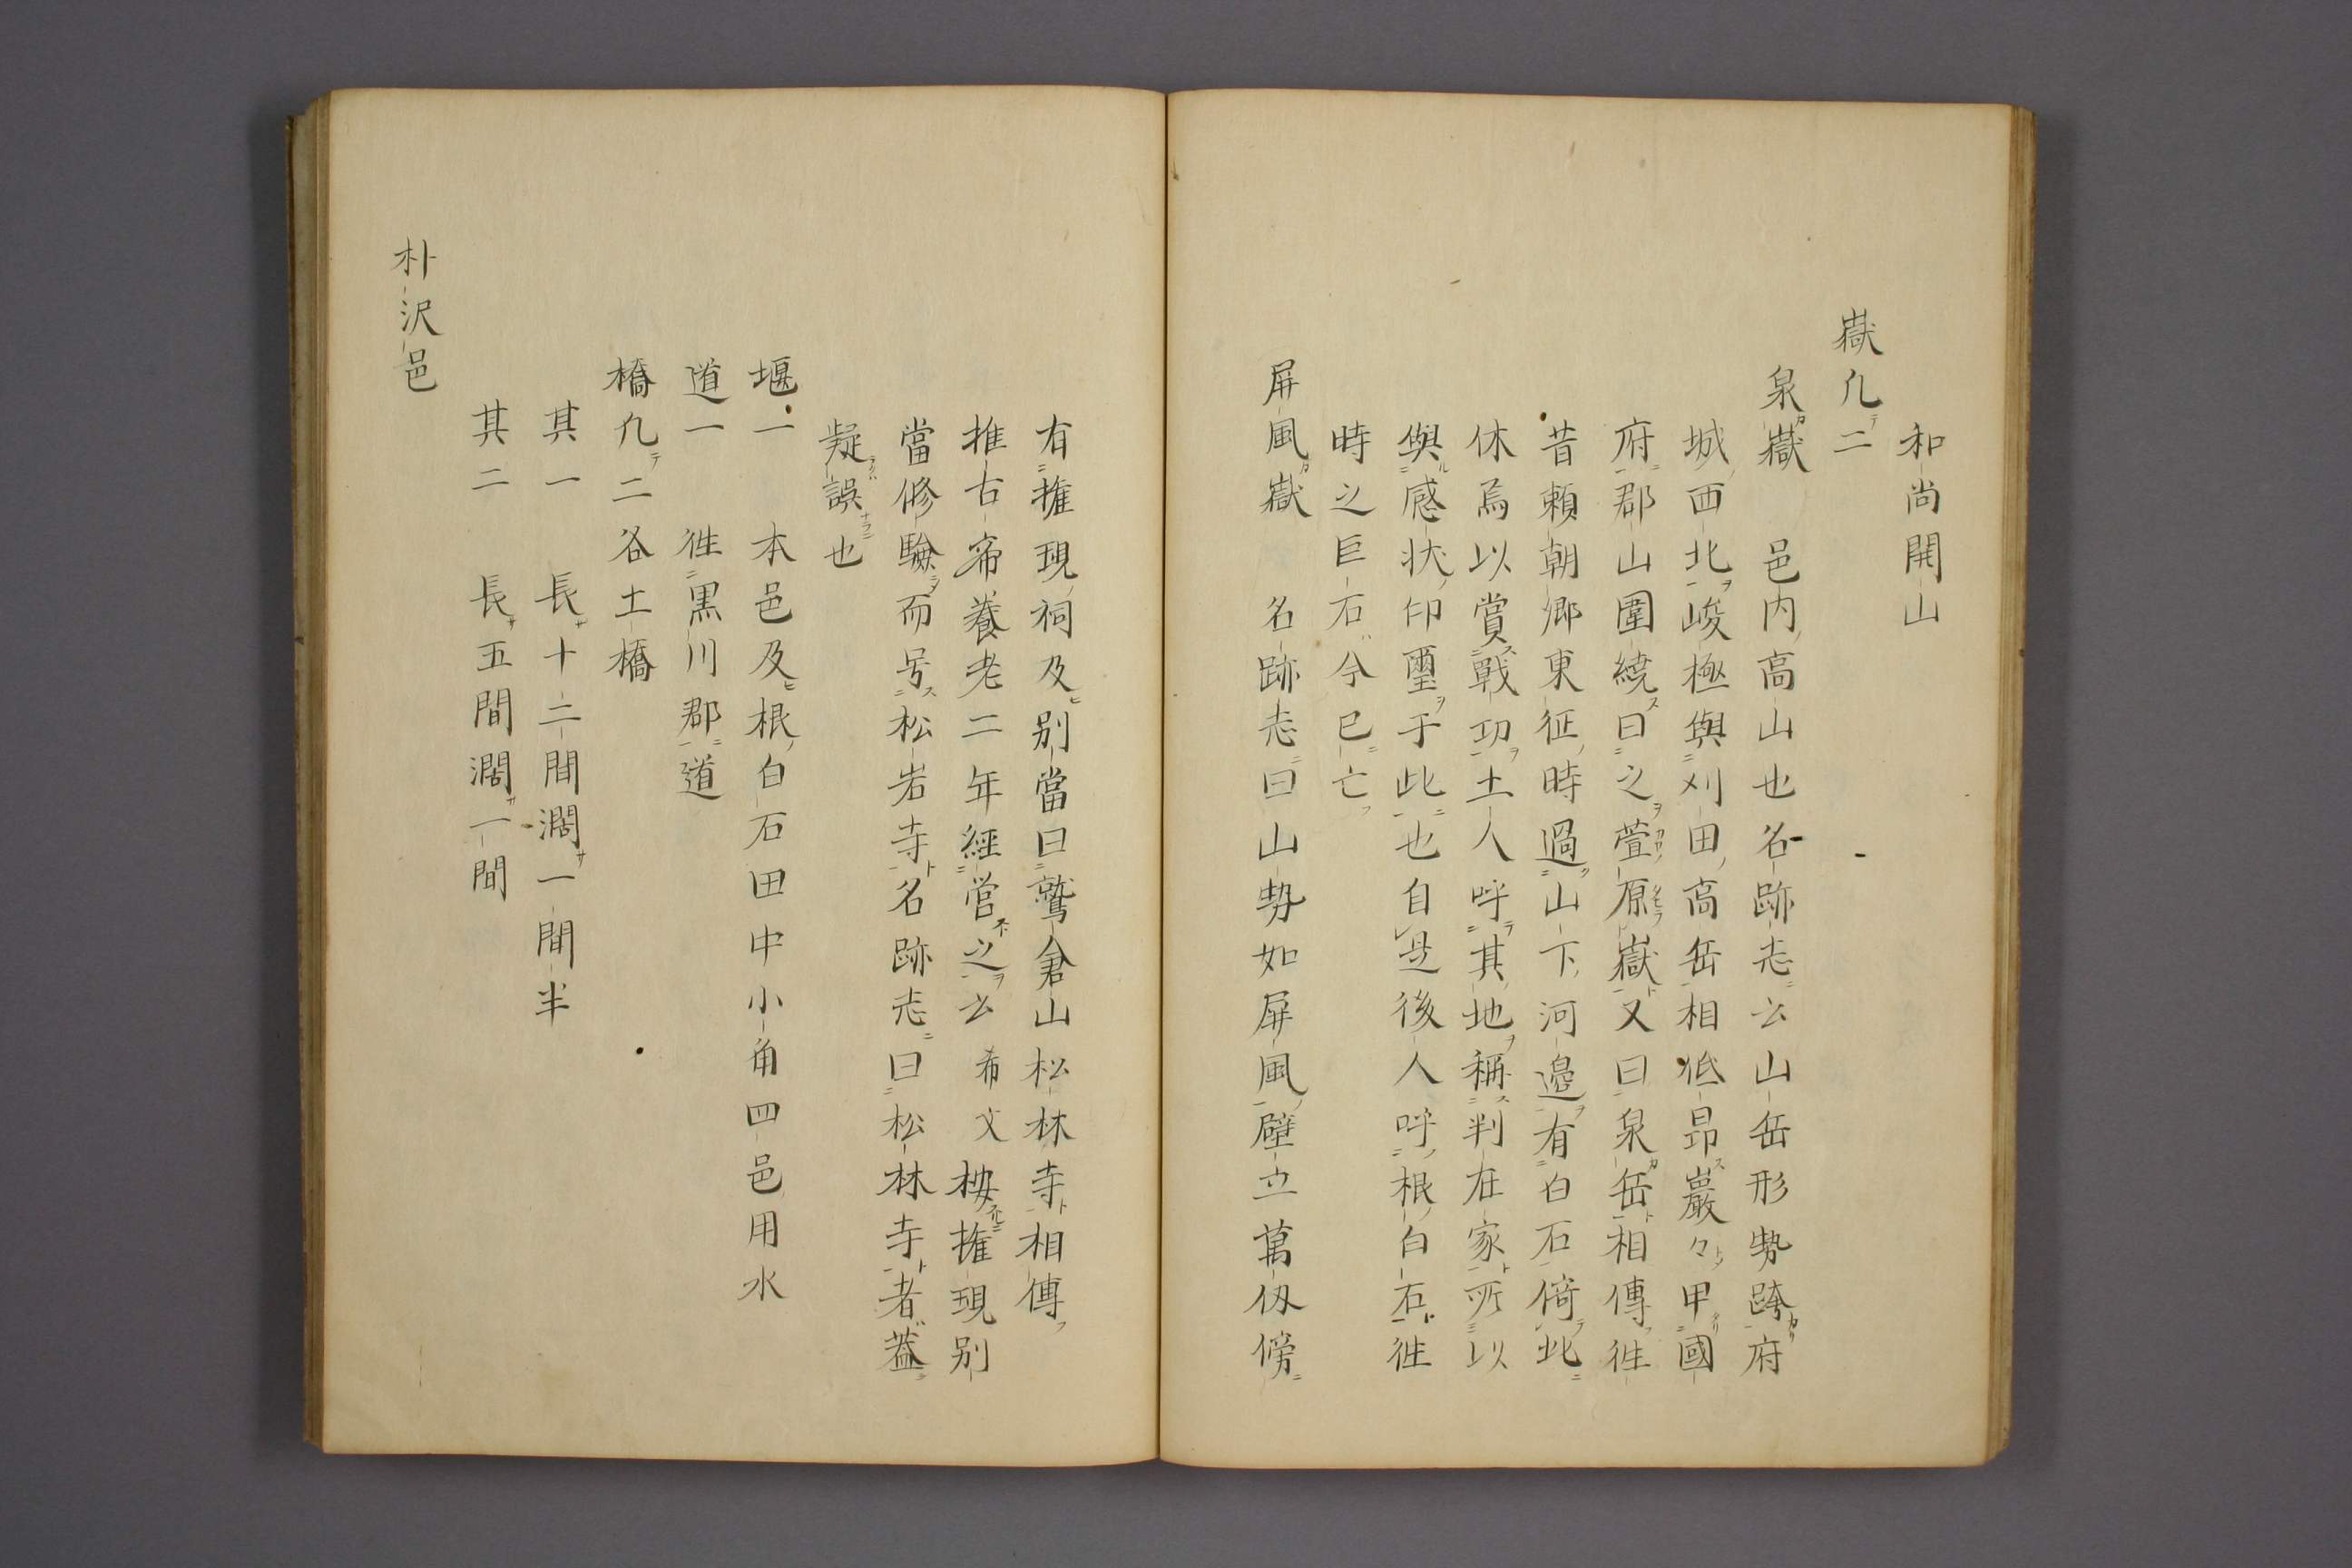 和尚開山
嶽凡二
泉嶽　邑内高山也名跡志云山岳形勢跨府
城西北峻極與刈田高岳相低昻巖々甲國
府郡山圍繞曰之萱原嶽又曰泉岳相傳往
昔頼朝郷東征時過山下河邉有白石倚此
休焉以賞戰功土人呼其地稱判在家所以
與感状印璽于此也自是後人呼根白石往
時之巨石今已亡
屏風嶽　名跡志曰山勢如屏風壁立萬仭傍
有擁現祠及別當曰鷲倉山松林寺相傳
推古帝養老二年經営之云希文桉擁現別
當修驗而号松岩寺名跡志曰松林寺者蓋
疑誤也
堰一　本邑及根白石田中小角四邑用水
道一　往黒川郡道
橋凡二各土橋
其一　長十二間濶一間半
其二　長五間濶一間
朴沢邑